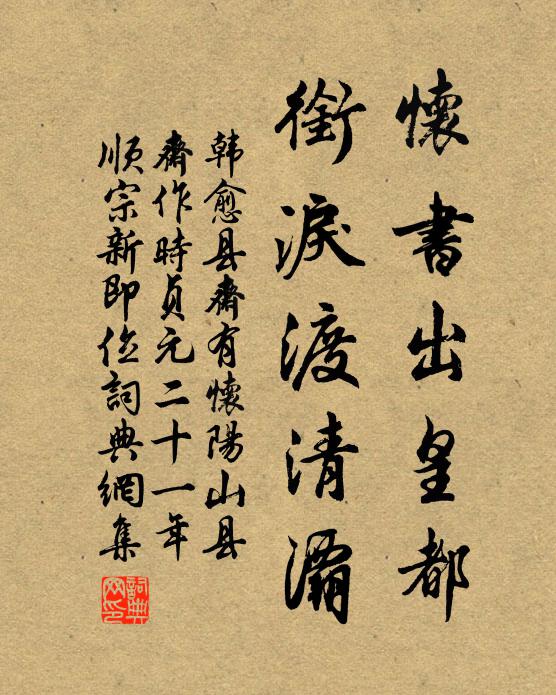 懷書出皇都
銜淚渡清灞
韩愈县齋有懷陽山县
齋作時貞元二十一年
順宗新即位詞典網集
詞典网印